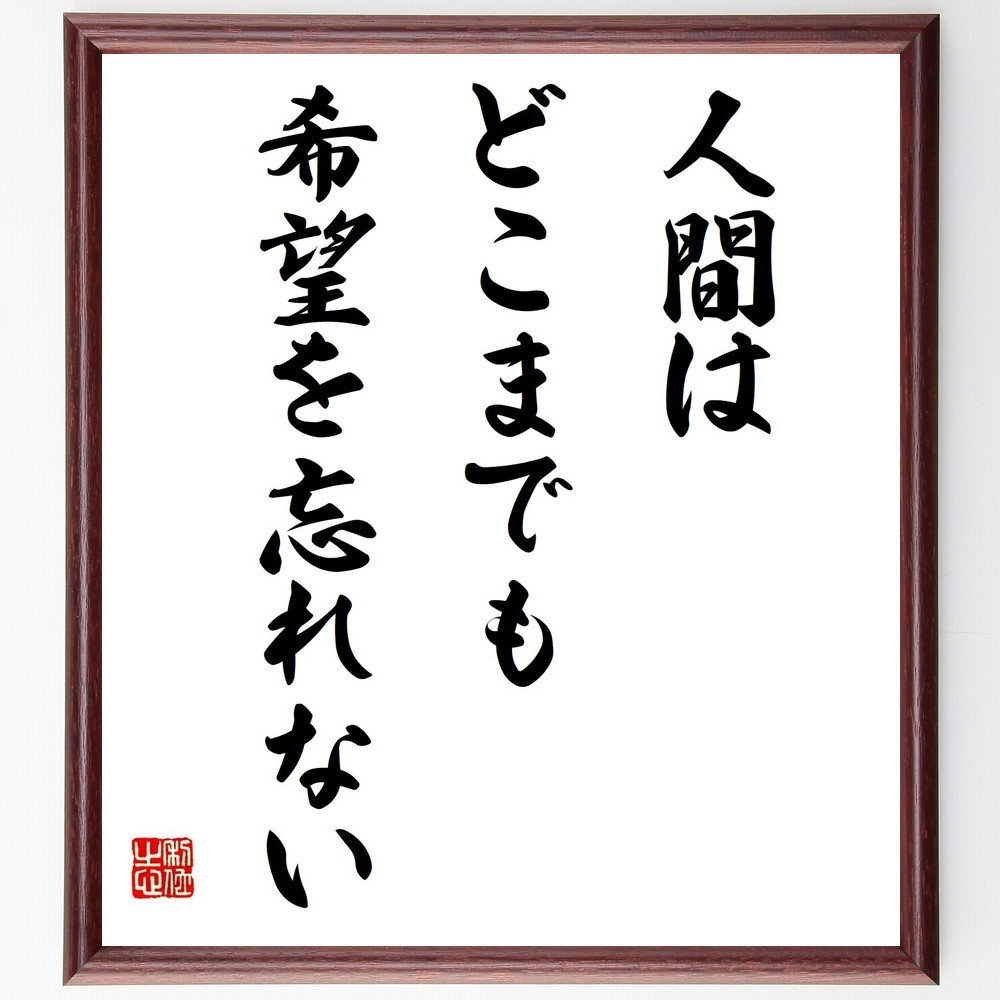 人間は
どこまでも
希望を忘れない